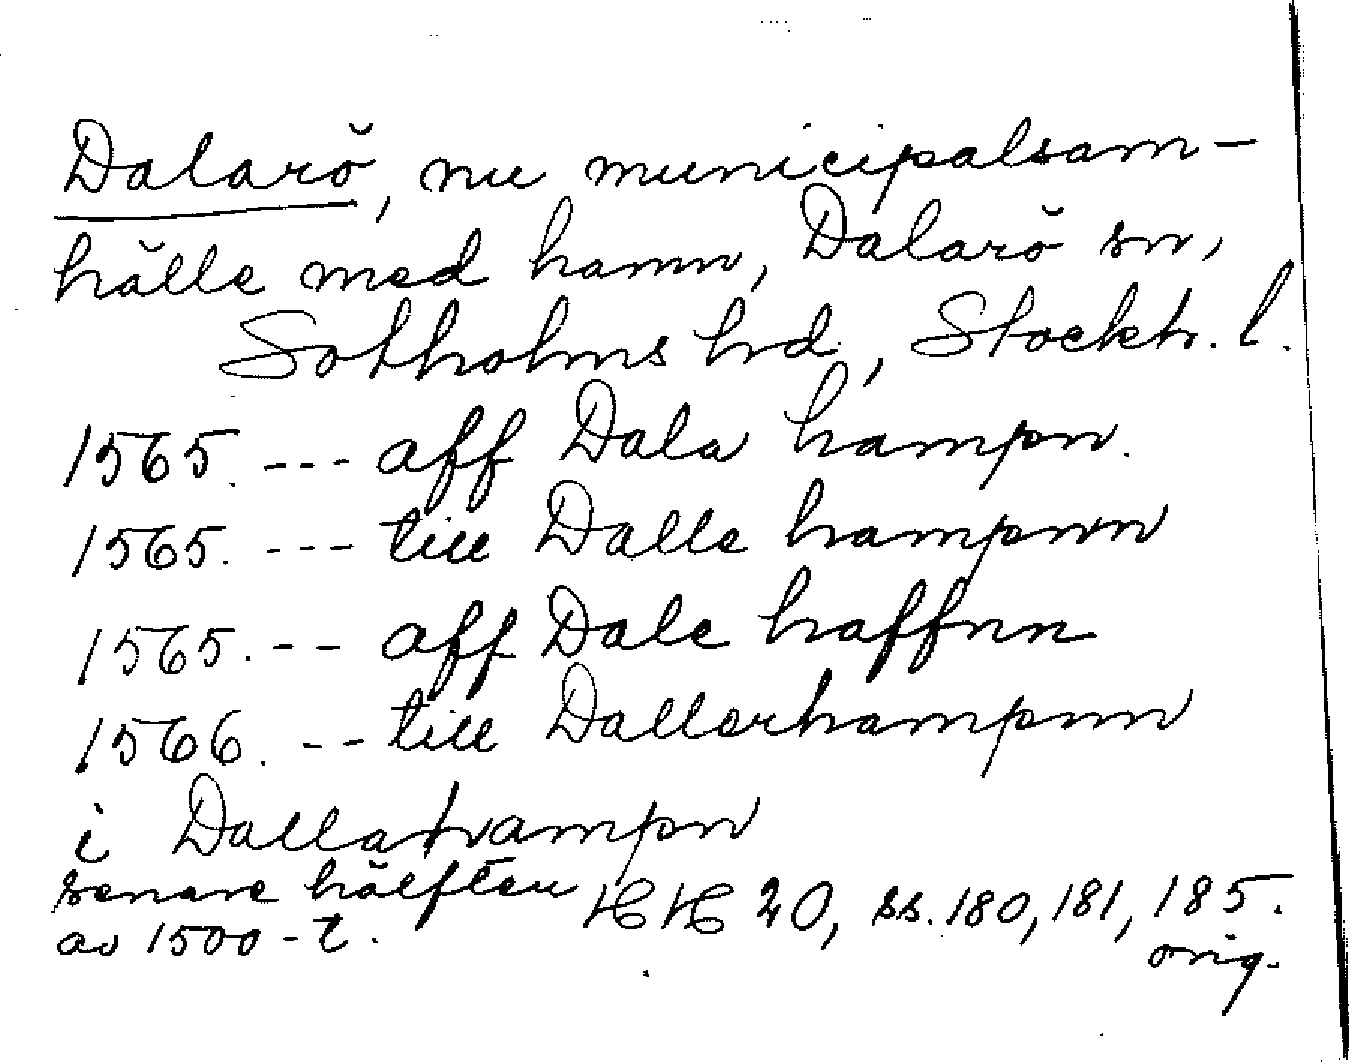 Dalarö, nu municipalsam-
hälle med hamn, Dalarö sn,
Sotholms hd, Stockh. l.
1565. --- aff Dala hampn.
1565. --- till Dalle hampnn
1565. -- aff Dale haffnn
1566. -- till Dallerhampnn
i Dallahampn
senare hälften
av 1500-t.
HH 20, ss. 180, 181, 185.
orig.